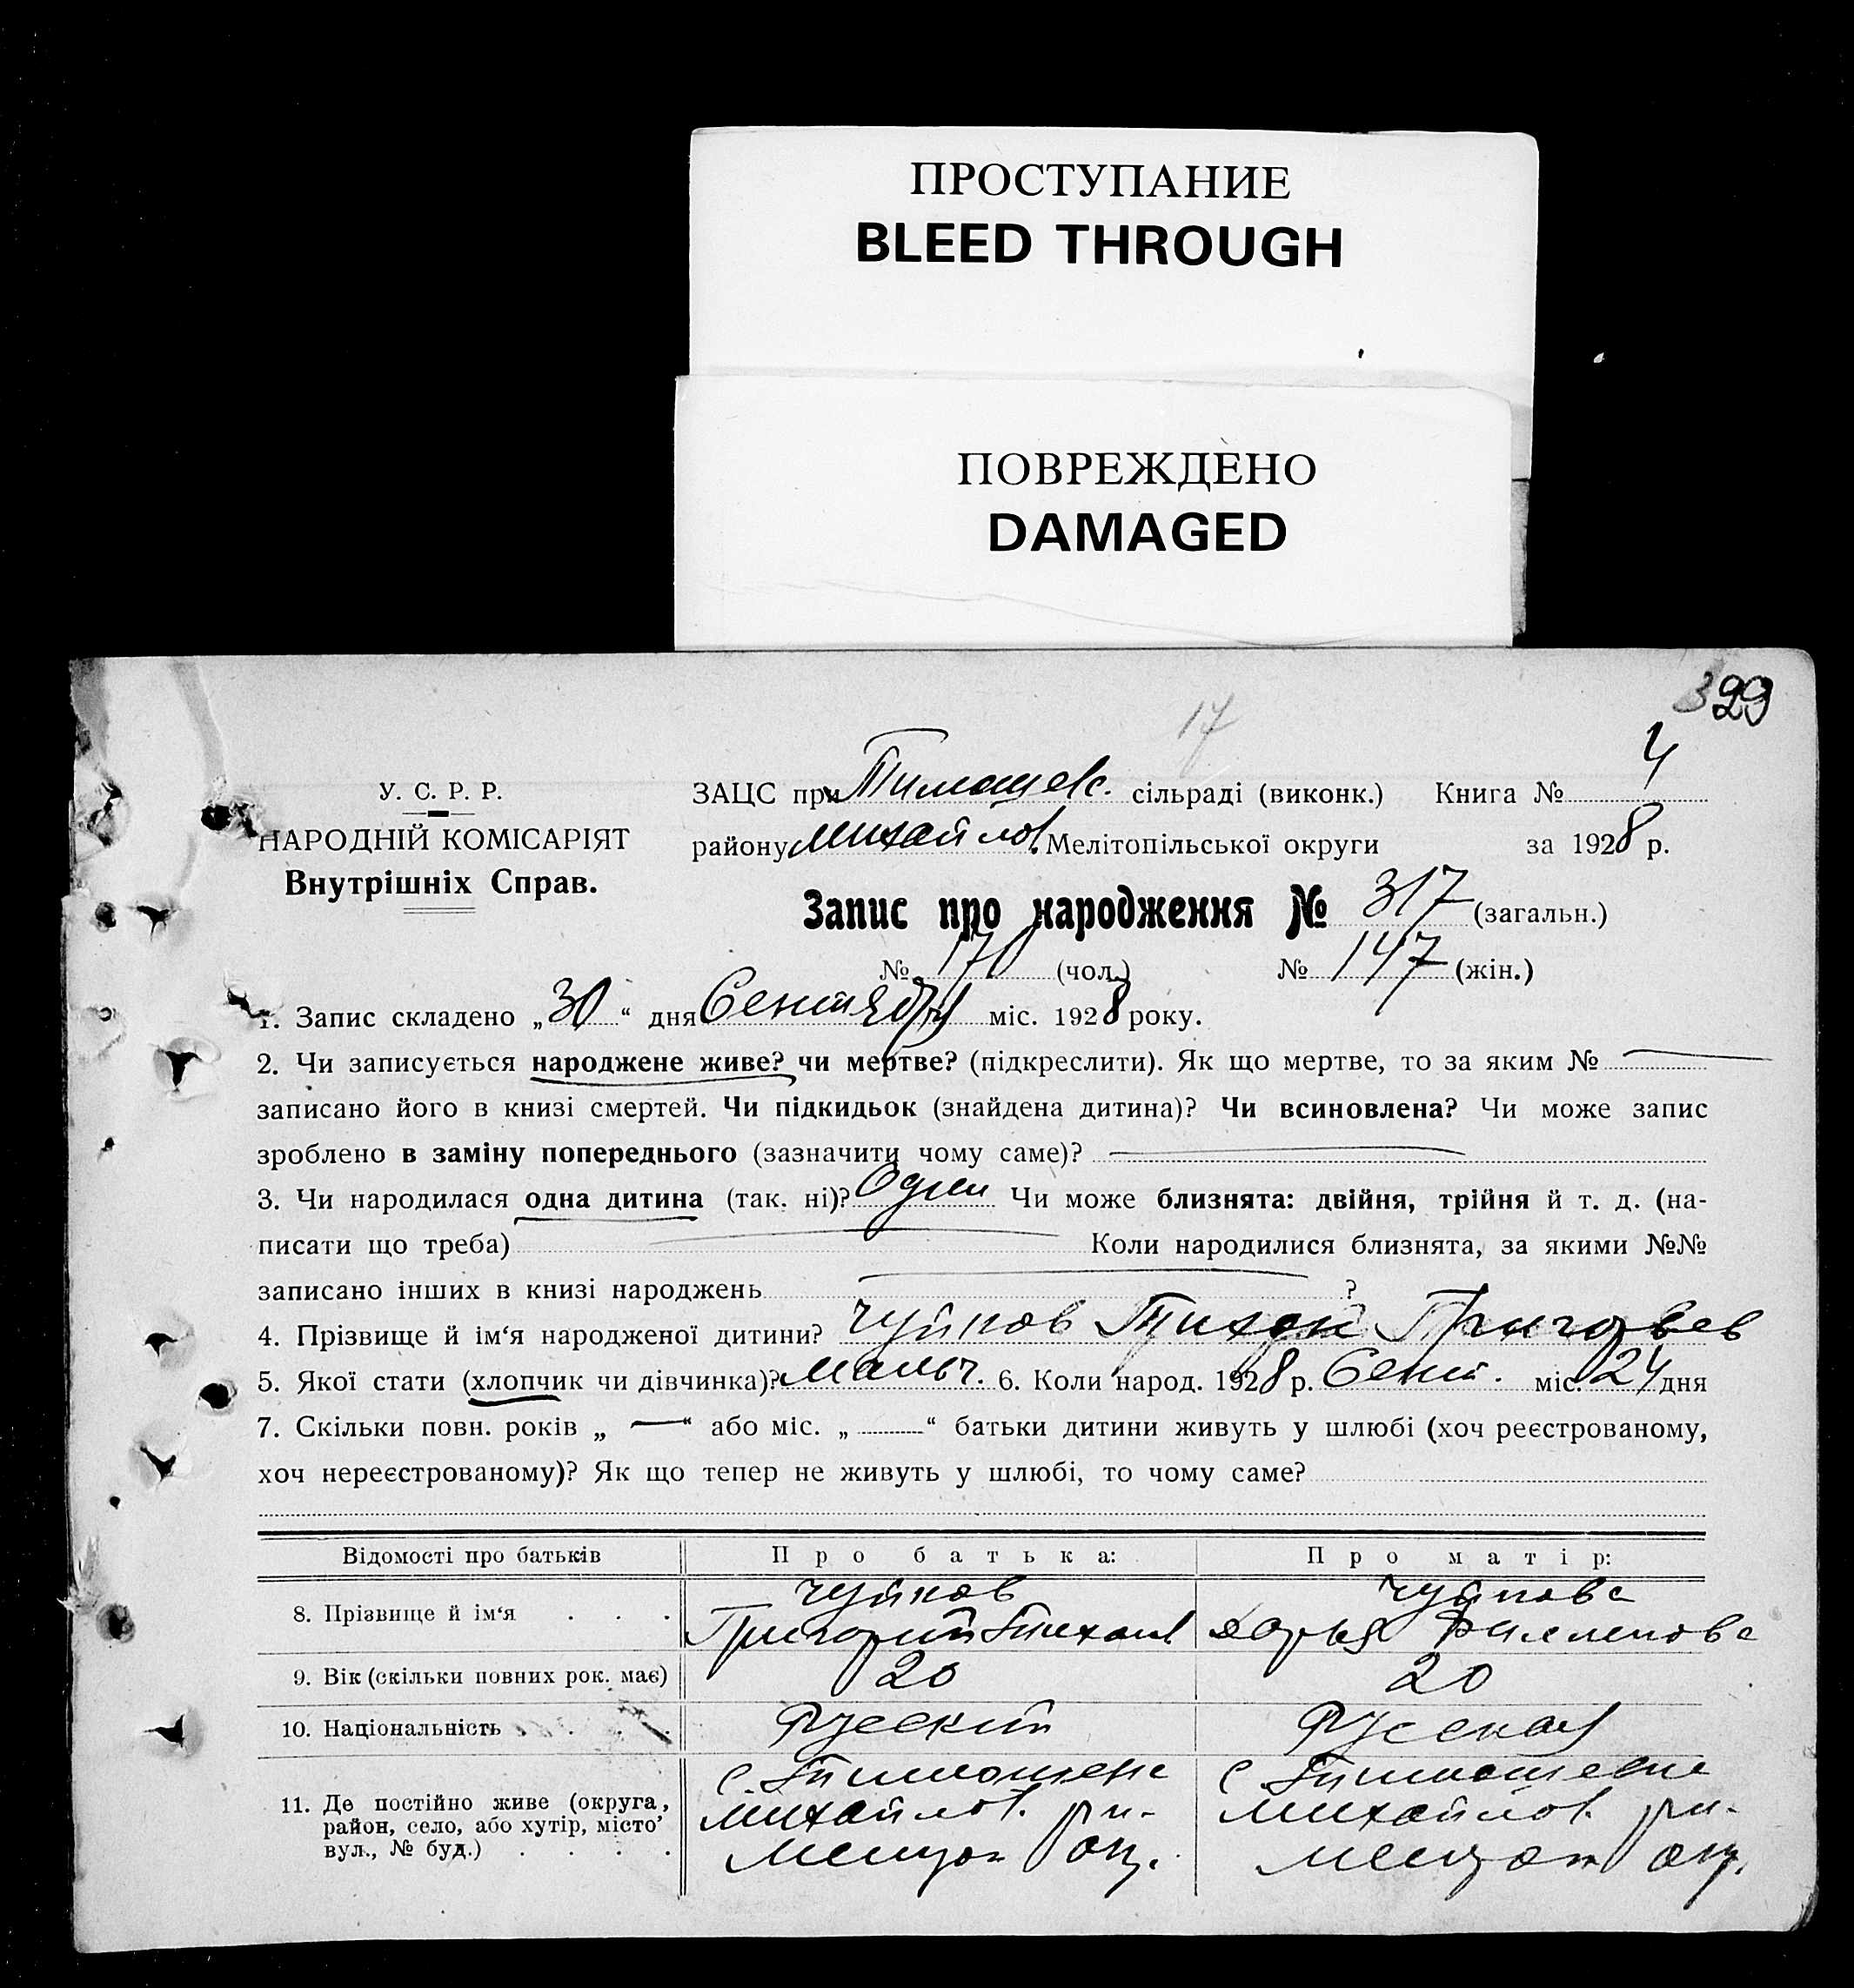 ПРОСТУПАНИЕ
BLEED THROUGH
ПОВРЕЖДЕНО
DAMAGED
329
17
У. С. Р. Р.
НАРОДНІЙ КОМІСАРІЯТ
Внутрішніх Справ.
ЗАЦС при Тимошевс. сільраді (виконк.) Книга № 4
району Михайлов. Мелітопільської округи за 1928 р.
Запис про народження № 317 (загальн.)
№ 170 (чол.) № 147 (жін.)
1. Запис складено „30“ дня Сентября міс. 1928 року.
2. Чи записується народжене живе? чи мертве? (підкреслити). Як що мертве, то за яким №
записано його в книзі смертей. Чи підкидьок (знайдена дитина)? Чи всиновлена? Чи може запис
зроблено в заміну попереднього (зазначити чому саме)?
3. Чи народилася одна дитина (так. ні)? Один Чи може близнята: двійня, трійня й т. д. (на-
писати що треба) Коли народилися близнята, за якими №№
записано інших в книзі народжень ?
4. Прізвище й ім‘я народженої дитини? Чуйков Тихон Григорьев
5. Якої стати (хлопчик чи дівчинка)? Мальч. 6. Коли народ. 1928 р. Сент. міс. 24 дня
7. Скільки повн. років „ — “ або міс. „ “ батьки дитини живуть у шлюбі (хоч реєстрованому,
хоч нереєстрованому)? Як що тепер не живуть у шлюбі, то чому саме?
Відомості про батьків Про батька: Про матір:
8. Прізвище й ім‘я . . . Чуйков Григорий Тихонов Чуйкова Дарья Филипова
9. Вік (скільки повних рок. має) 20 20
10. Національність . . . . Русский Русская
11. Де постійно живе (округа, с. Тимошевк с. Тимошевка
район, село, або хутір, місто, Михайлов. рн- Михайлов. рн-
вул., № буд.) . . . . Мелитоп окр. Мелитоп окр.